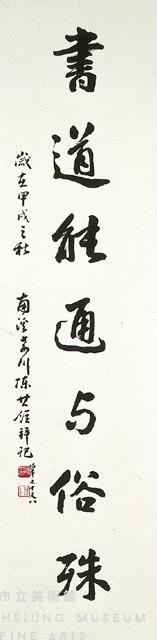 書道能通与俗殊
歲在甲戌之秋 南溪家川陳世鏗拜記
市立美術館
HSIUNG MUSEUM
FINE ARTS